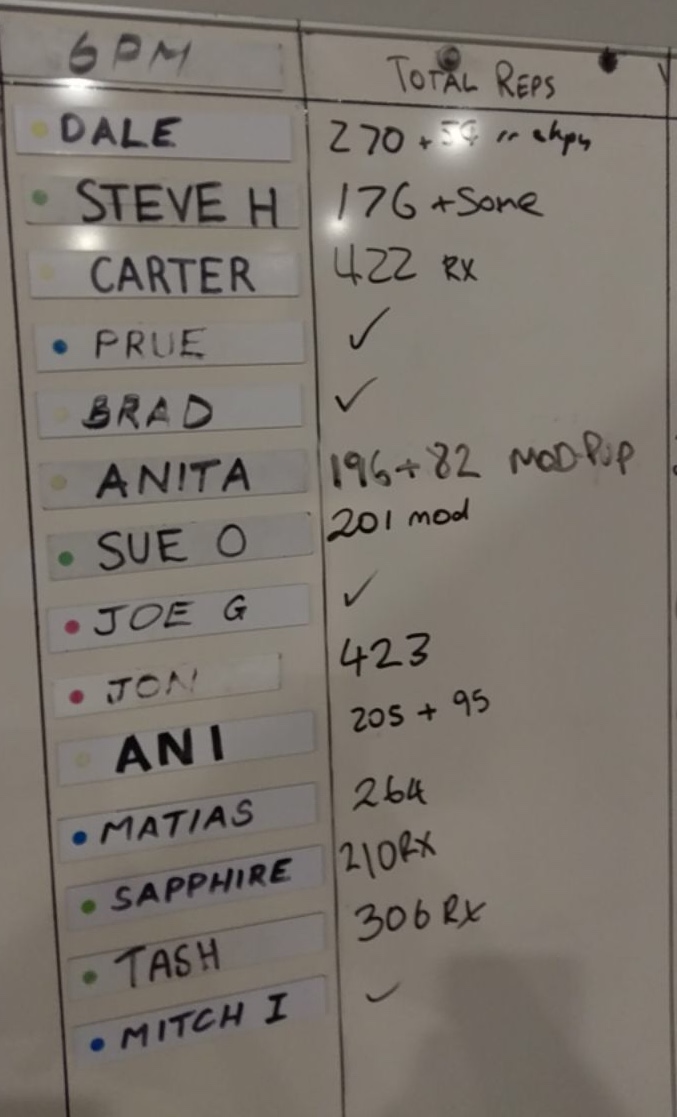 6PM TOTAL REPS
DALE 270 +
STEVE H 176 + Some
CARTER 422 RX
PRUE ✓
BRAD ✓
ANITA 196 + 82 MOD PUP
SUE O 201 mod
JOE G ✓
JON 423
ANI 205 + 95
MATIAS 264
SAPPHIRE 210 RX
TASH 306 RX
MITCH I ✓